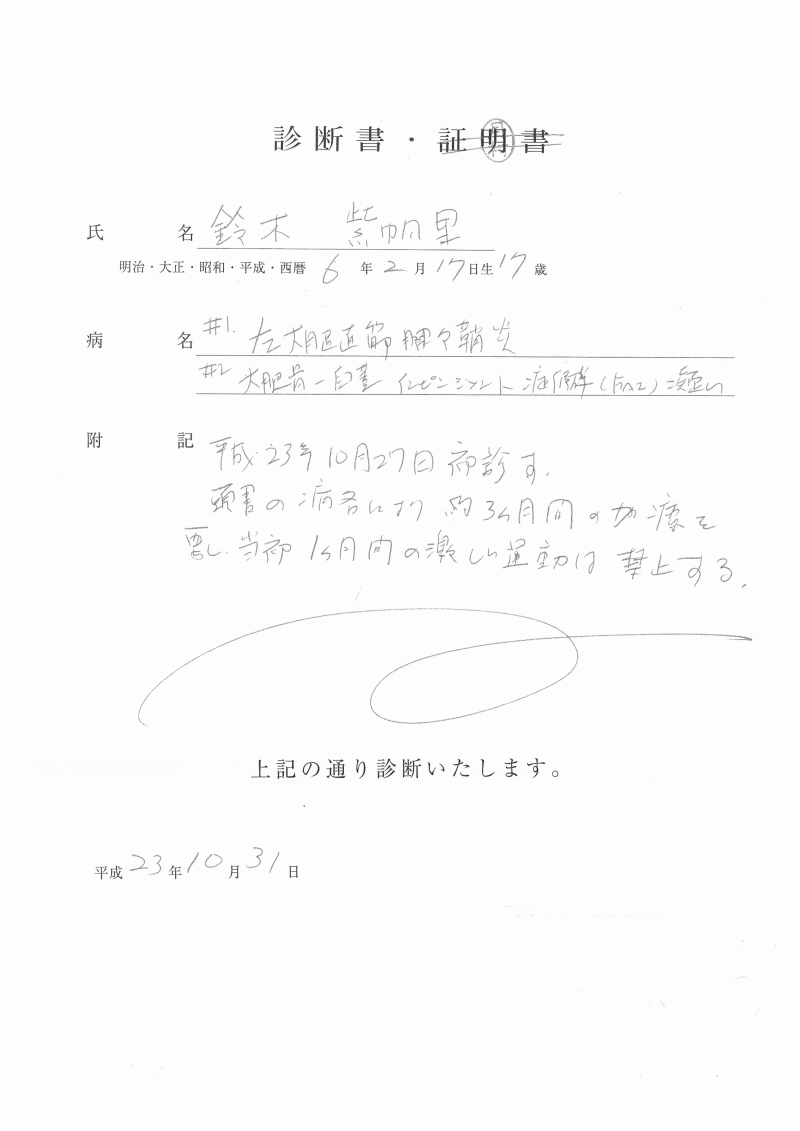 診断書・証明書
氏 名 鈴木 紫帆里
明治・大正・昭和・平成・西暦 6 年 2 月 17 日生 17 歳
病 名 #1. 左大腿直筋腱々鞘炎
#2 大腿骨-臼蓋インピンジメント症候群(FAI)疑い
附 記 平成23年10月27日初診す.
頭書の病名により 約3ヶ月間の加療を
要し. 当初 1ヶ月間の激しい運動は 禁止する.
上記の通り診断いたします。
平成 23 年 10 月 31 日